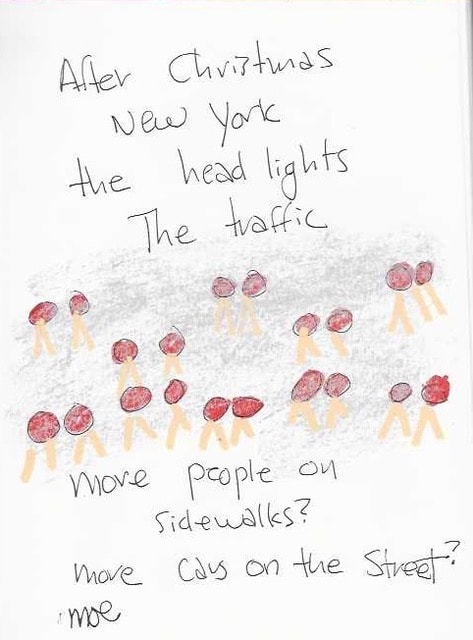 After Christmas
New York
the head lights
The traffic
more people on
sidewalks?
more cars on the Street?
moe